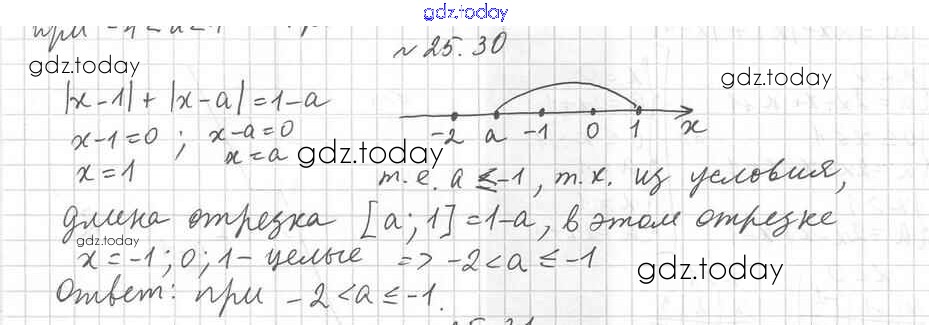 gdz.today
при -1 < a < 1
№ 25.30
gdz.today
gdz.today
|x-1| + |x-a| = 1-a
x-1=0 ; x-a=0
x=1 x=a
gdz.today
-2 a -1 0 1 x
т.е. a ≤ -1, т.к. из условия,
длина отрезка [a; 1] = 1-a, в этом отрезке
gdz.today
x = -1; 0; 1 - целые => -2 < a ≤ -1
gdz.today
Ответ: при -2 < a ≤ -1.